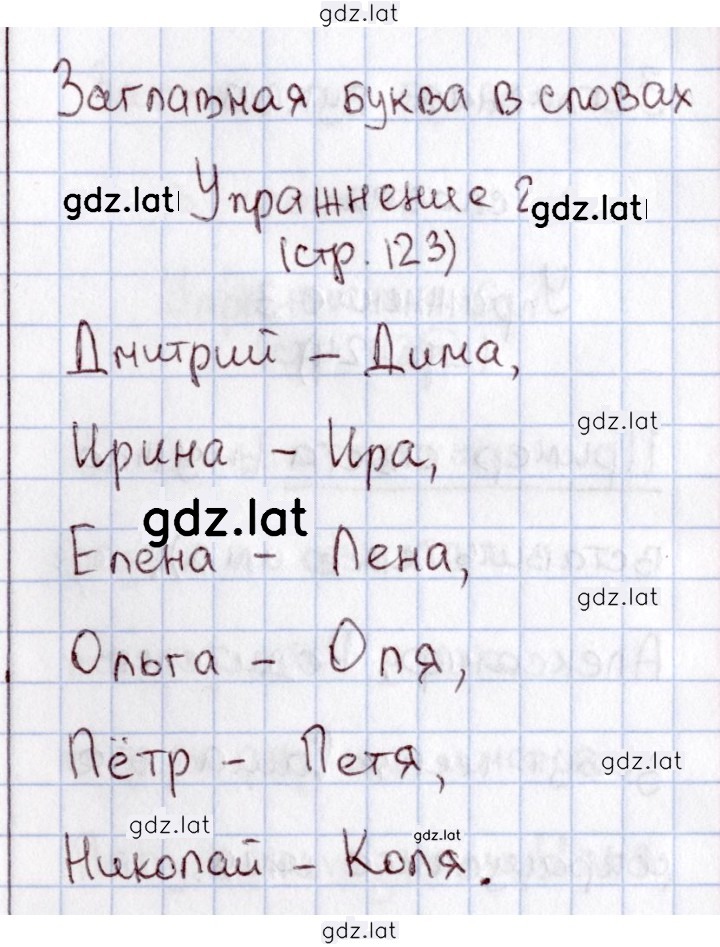 gdz.lat
Заглавная буква в словах
gdz.lat Упражнение 2 gdz.lat
(стр. 123)
Дмитрий – Дима,
gdz.lat
Ирина – Ира,
gdz.lat
Елена – Лена,
gdz.lat
Ольга – Оля,
Пётр – Петя, gdz.lat
gdz.lat gdz.lat
Николай – Коля.
gdz.lat